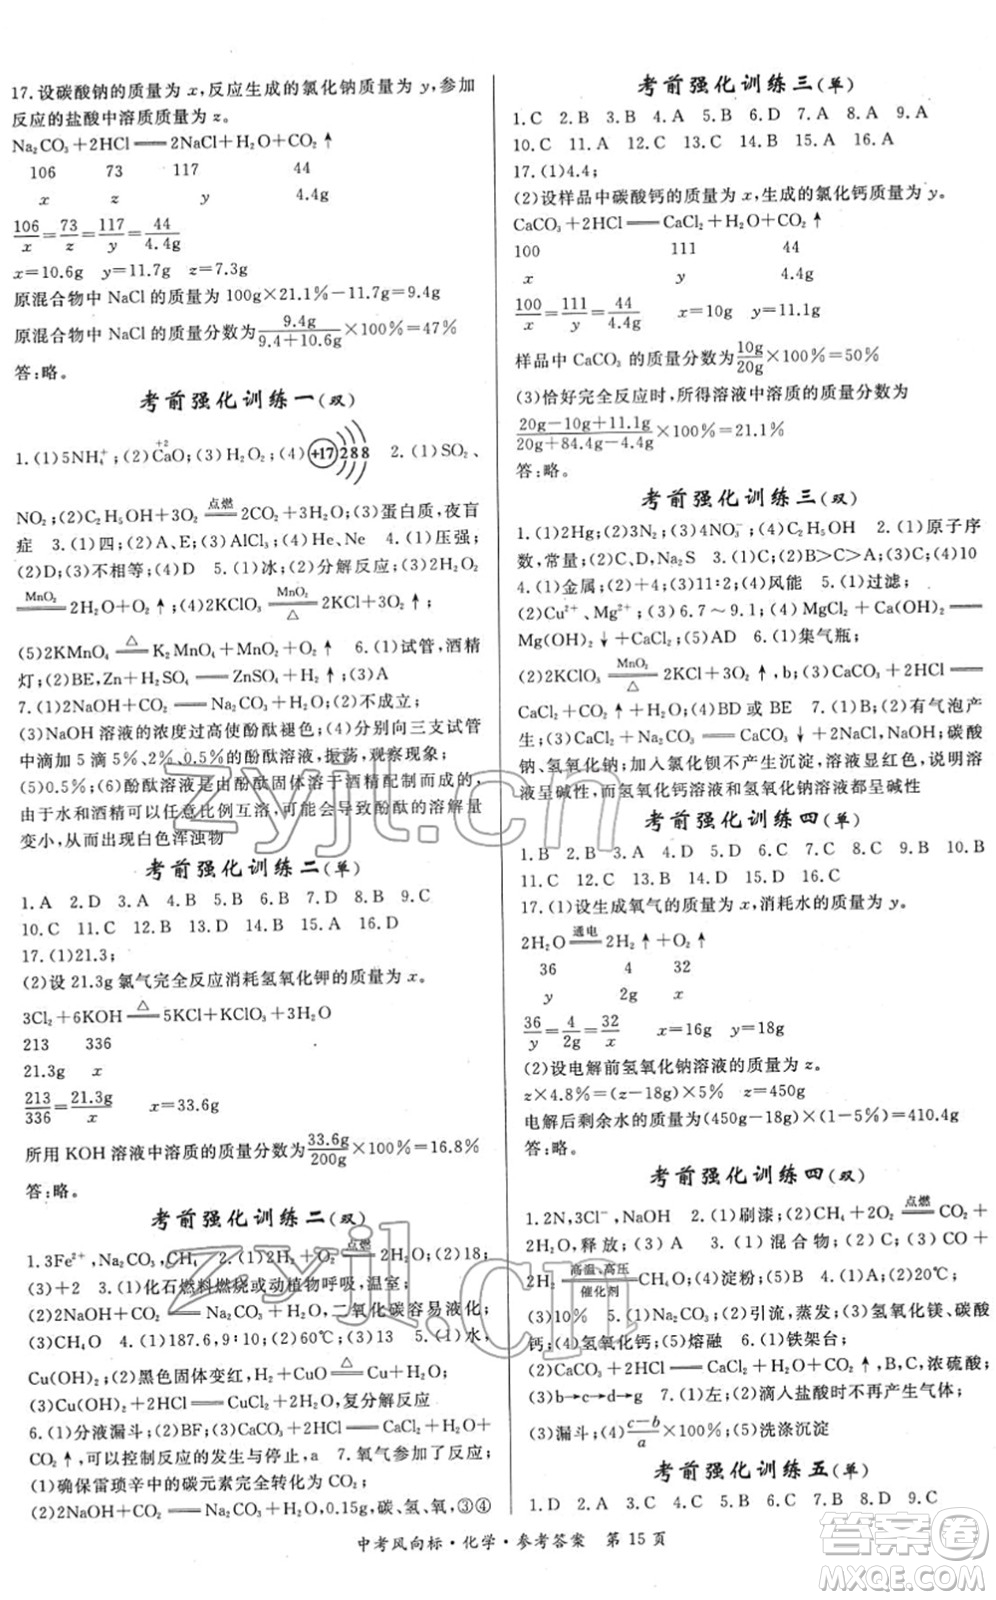 17.设碳酸钠的质量为 x,反应生成的氯化钠质量为 y,参加
反应的盐酸中溶质质量为 z。
Na₂CO₃+2HCl══2NaCl+H₂O+CO₂↑
106 73 117 44
x z y 4.4g
106/x=73/z=117/y=44/4.4g
x=10.6g y=11.7g z=7.3g
原混合物中 NaCl 的质量为 100g×21.1%-11.7g=9.4g
原混合物中 NaCl 的质量分数为9.4g/(9.4+10.6g)×100%=47%
答:略。
考前强化训练一(双)
1.(1)5NH₄⁺;(2)CaO(+2);(3)H₂O₂;(4)+17 2 8 8 2.(1)SO₂、
NO₂;(2)C₂H₅OH+3O₂ ══点燃 2CO₂+3H₂O;(3)蛋白质,夜盲
症 3.(1)四;(2)A、E;(3)AlCl₃;(4)He、Ne 4.(1)压强;
(2)D;(3)不相等;(4)D 5.(1)冰;(2)分解反应;(3)2H₂O₂
══MnO₂ 2H₂O+O₂↑;(4)2KClO₃ ══MnO₂ △ 2KCl+3O₂↑;
(5)2KMnO₄ ══△ K₂MnO₄+MnO₂+O₂↑ 6.(1)试管,酒精
灯;(2)BE,Zn+H₂SO₄══ZnSO₄+H₂↑;(3)A
7.(1)2NaOH+CO₂══Na₂CO₃+H₂O;(2)不成立;
(3)NaOH 溶液的浓度过高使酚酞褪色;(4)分别向三支试管
中滴加 5 滴 5%、2%、0.5%的酚酞溶液,振荡,观察现象;
(5)0.5%;(6)酚酞溶液是由酚酞固体溶于酒精配制而成的,
由于水和酒精可以任意比例互溶,可能会导致酚酞的溶解量
变小,从而出现白色浑浊物
考前强化训练二(单)
1.A 2.D 3.A 4.B 5.C 6.D 7.B 8.B 9.C
10.C 11.A 12.B 13.D 14.B 15.A 16.D
17.(1)21.3;
(2)设 21.3g 氯气完全反应消耗氢氧化钾的质量为 x。
3Cl₂+6KOH ══△ 5KCl+KClO₃+3H₂O
213 336
21.3g x
213/336=21.3g/x x=33.6g
所用 KOH 溶液中溶质的质量分数为33.6g/200g×100%=16.8%
答:略。
考前强化训练二(双)
1.3Fe²⁺,Na₂CO₃,CH₄ 2.(1)2H₂+O₂ ══点燃 2H₂O;(2)18;
(3)+2 3.(1)化石燃料燃烧或动植物呼吸,温室;
(2)2NaOH+CO₂══Na₂CO₃+H₂O,二氧化碳容易液化;
(3)CH₄O 4.(1)187.6,9∶10;(2)60℃;(3)13 5.(1)水,
Cu(OH)₂;(2)黑色固体变红,H₂+CuO ══△ Cu+H₂O;
(3)Cu(OH)₂+2HCl══CuCl₂+2H₂O,复分解反应
6.(1)分液漏斗;(2)BF;(3)CaCO₃+2HCl══CaCl₂+H₂O+
CO₂↑,可以控制反应的发生与停止,a 7.氧气参加了反应;
(1)确保雷琐辛中的碳元素完全转化为 CO₂;
(2)2NaOH+CO₂══Na₂CO₃+H₂O,0.15g,碳、氢、氧,③④
考前强化训练三(单)
1.C 2.B 3.B 4.A 5.C 6.D 7.A 8.A 9.A
10.C 11.A 12.A 13.C 14.D 15.A 16.A
17.(1)4.4;
(2)设样品中碳酸钙的质量为 x,生成的氯化钙质量为 y。
CaCO₃+2HCl══CaCl₂+H₂O+CO₂↑
100 111 44
x y 4.4g
100/x=111/y=44/4.4g x=10g y=11.1g
样品中 CaCO₃ 的质量分数为10g/20g×100%=50%
(3)恰好完全反应时,所得溶液中溶质的质量分数为
(20g-10g+11.1g)/(20g+84.4g-4.4g)×100%=21.1%
答:略。
考前强化训练三(双)
1.(1)2Hg;(2)3N₂;(3)4NO₃⁻;(4)C₂H₅OH 2.(1)原子序
数,常量;(2)D,Na₂S 3.(1)C;(2)B>C>A;(3)C;(4)10
4.(1)金属;(2)4;(3)11∶2;(4)风能 5.(1)过滤;
(2)Cu²⁺、Mg²⁺;(3)6.7~9.1;(4)MgCl₂+Ca(OH)₂══
Mg(OH)₂↓+CaCl₂;(5)AD 6.(1)集气瓶;
(2)2KClO₃ ══MnO₂ △ 2KCl+3O₂↑,b;(3)CaCO₃+2HCl══
CaCl₂+CO₂↑+H₂O;(4)BD或 BE 7.(2)有气泡产
生;Ca(OH)₂+Na₂CO₃══CaCO₃↓+2NaOH;碳酸
钠、氢氧化钠;加入氯化钡不产生沉淀,溶液显红色,说明溶
液呈碱性,而氢氧化钙溶液和氢氧化钠溶液都呈碱性
考前强化训练四(单)
1.B 2.B 3.A 4.D 5.D 6.C 7.C 8.D 9.C 10.B
11.C 12.C 13.D 14.D 15.D 16.C
17.(1)设生成氧气的质量为 x,消耗水的质量为 y。
2H₂O ══通电 2H₂↑+O₂↑
36 4 32
y 2g x
36/y=4/2g=32/x x=16g y=18g
(2)设电解前氢氧化钠溶液的质量为 z。
z×4.8%=(z-18g)×5% z=450g
电解后剩余水的质量为(450g-18g)×(1-5%)=410.4g
答:略。
考前强化训练四(双)
1.2N,3Cl⁻,NaOH 2.(1)刷漆;(2)CH₄+2O₂ ══点燃 CO₂+
2H₂O,释放;(3)A 3.(1)混合物;(2)C;(3)CO₂+
2H₂ ══高温、高压 催化剂 CH₄O;(4)淀粉;(5)A 4.(1)A;(2)20℃;
(3)10% 5.(1)Na₂CO₃;(2)引流,蒸发;(3)氢氧化镁、碳酸
钙;(4)氢氧化钙;(5)熔融 6.(1)铁架台;
(2)CaCO₃+2HCl══CaCl₂+H₂O+CO₂↑,B,浓硫酸;
(3)b→c→d→g 7.(1)左;(2)滴入盐酸时不再产生气体;
(3)漏斗;(4)(c-b)/a×100%;(5)洗涤沉淀
考前强化训练五(单)
1.D 2.A 3.C 4.D 5.D 6.D 7.D 8.B 9.C
中考风向标·化学·参考答案 第 15 页
zyjl.cn
zyjl.cn
作业精灵
MXQE.COM